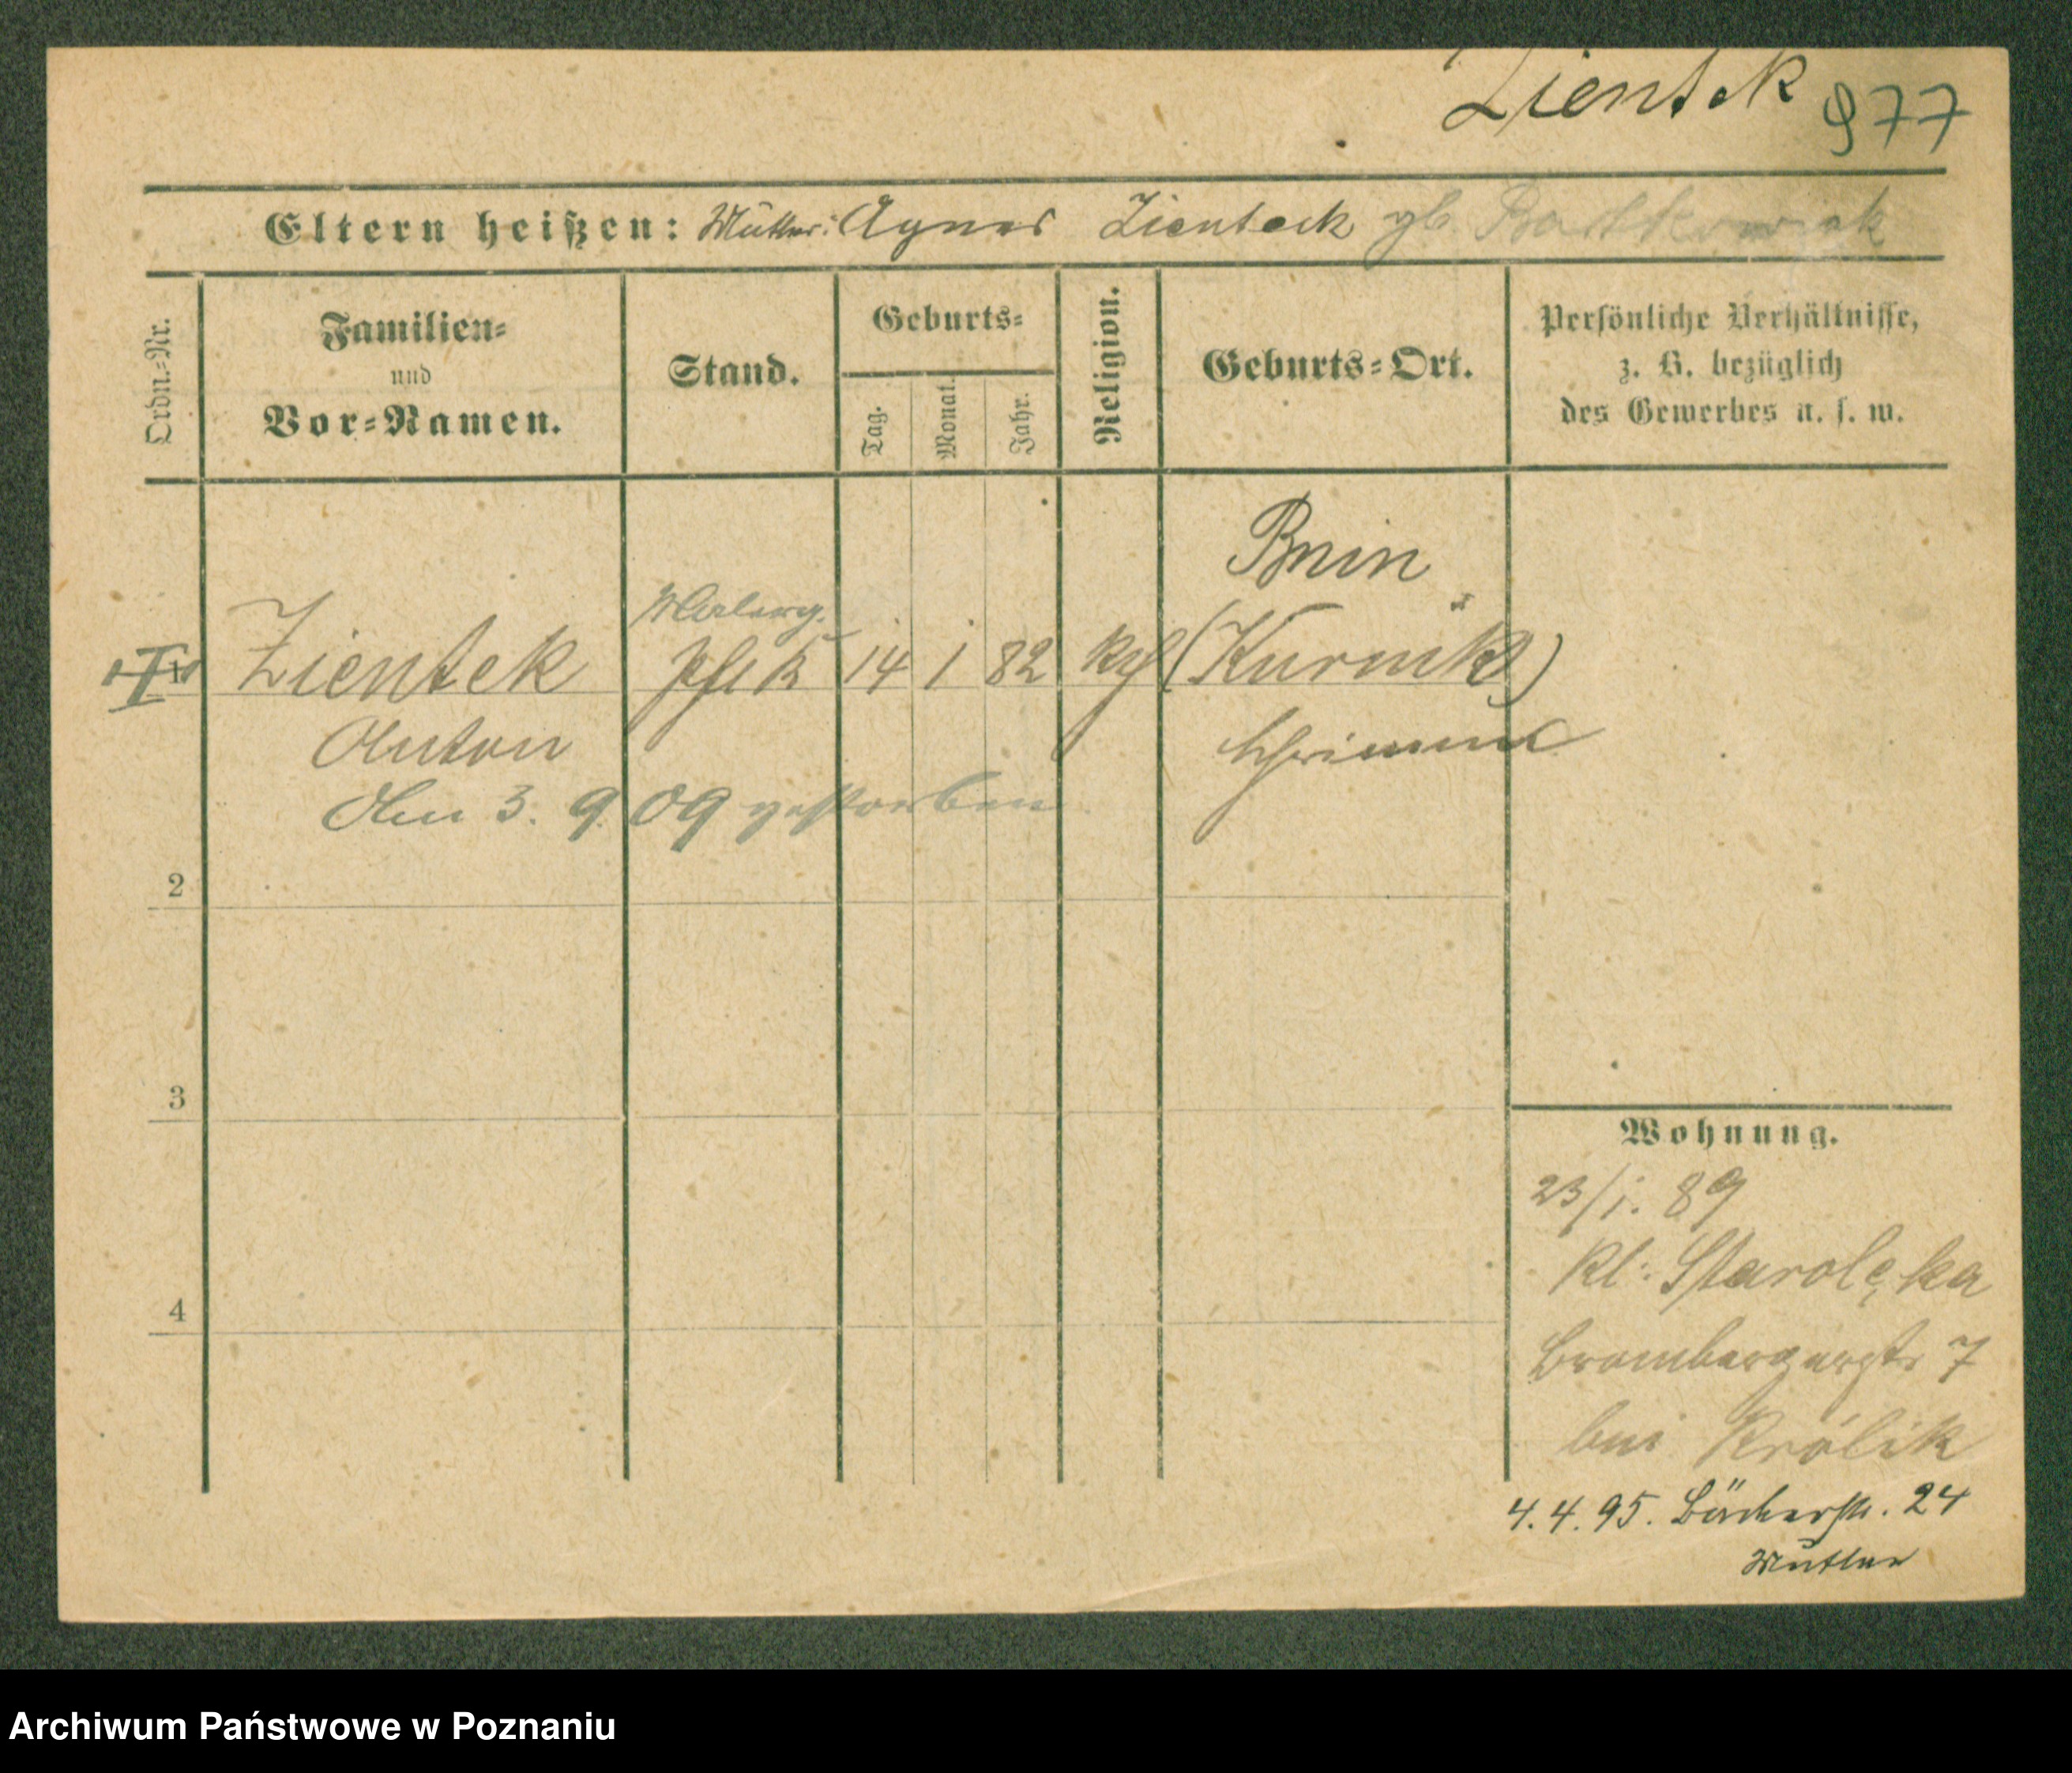 Zientek 977
Eltern heißen: Mutter: Agnes Zienteck gb.
Ordn.=Nr.
Familien=
und
Vor=Namen.
Stand.
Geburts=
Tag.
Monat.
Jahr.
Religion.
Geburts=Ort.
Persönliche Verhältnisse,
z. B. bezüglich
des Gewerbes u. s. w.
Bnin
Zientek 14 1 82 kth (Kurnik)
Anton Schrimm
Am 3. 9. 09 gestorben
2
3
4
Wohnung.
23/1. 89
Kl: Starolęka
Brombergerstr 7
bei Królik
4. 4. 95. Bäckerstr. 24
Mutter
Archiwum Państwowe w Poznaniu